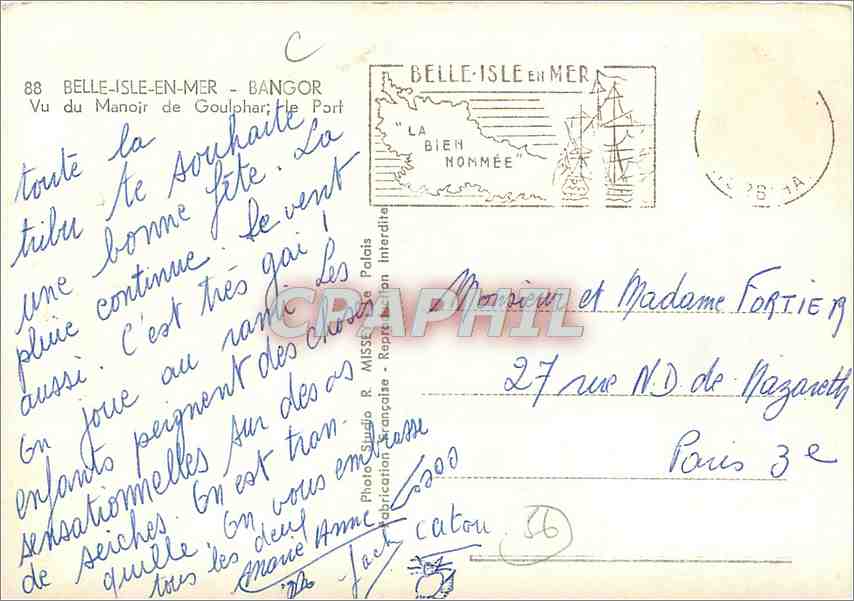 C
88 BELLE-ISLE-EN-MER - BANGOR
Vu du Manoir de Goulphar; le Port
toute la
tribu te souhaite
une bonne fête. La
pluie continue. Le vent
aussi. C'est très gai !
On joue au rami. Les
enfants peignent des choses
sensationnelles sur des os
de seiches. On est tran-
quille. On vous embrasse
tous les deux
Marie Anne
Jack
catou
BELLE-ISLE EN MER
"LA
BIEN
NOMMÉE"
Photo Studio R. MISSEY Le Palais
Fabrication Française - Reproduction Interdite
CPAPHIL
Monsieur et Madame FORTIER
27 rue N.D. de Nazareth
Paris 3e
56